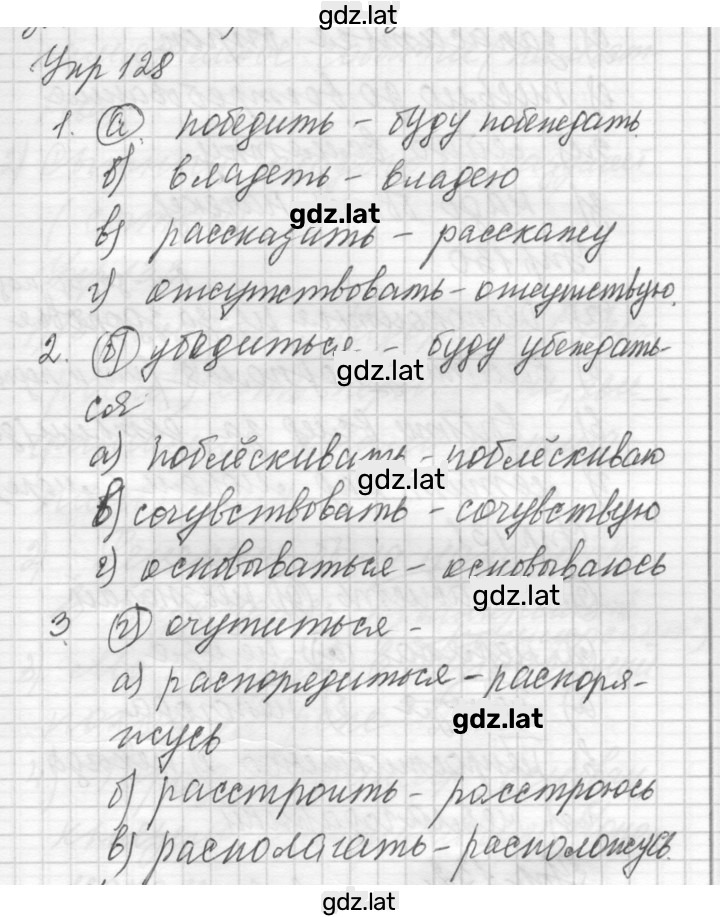 gdz.lat
Упр 128
1. а) победить – буду побеждать.
б) владеть – владею
gdz.lat
в) рассказать – расскажу
г) отсутствовать – отсутствую.
2. б) убедиться – буду убеждать-
gdz.lat
ся
а) поблёскивать – поблёскиваю
gdz.lat
в) сочувствовать – сочувствую
г) основываться – основываюсь
gdz.lat
3 г) очутиться –
а) распорядиться – распоря-
gdz.lat
жусь
б) расстроить – расстроюсь
в) располагать – расположусь.
gdz.lat